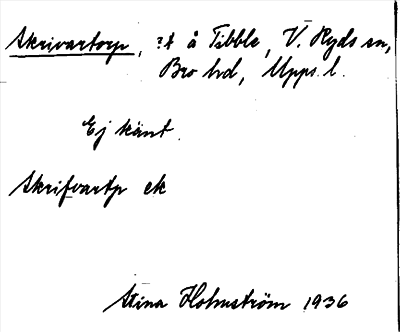 Skrivartorp, ?t å Tibble, V. Ryds sn,
Bro hd, Upps. l.
Ej känt.
Skrifvartp ek
Stina Holmström 1936